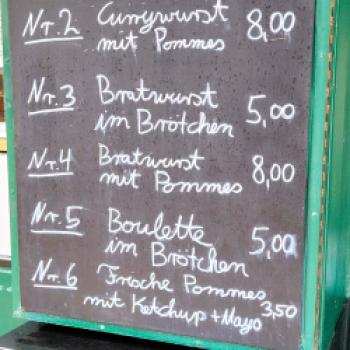 Nr. 2 Currywurst 8,00
mit Pommes
Nr. 3 Bratwurst 5,00
im Brötchen
Nr. 4 Bratwurst 8,00
mit Pommes
Nr. 5 Boulette 5,00
im Brötchen
Nr. 6 Frische Pommes
mit Ketchup + Mayo 3,50